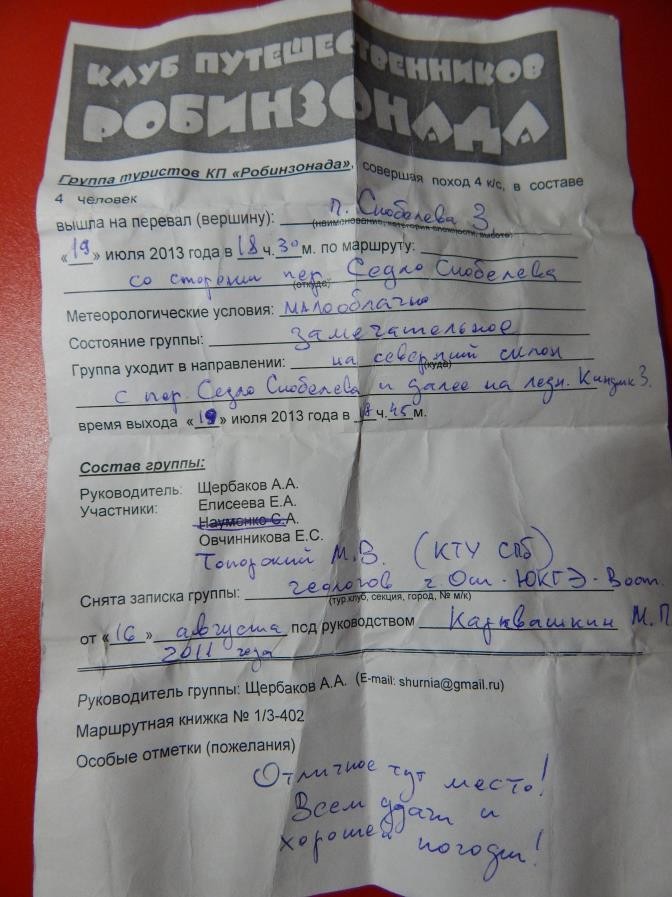 КЛУБ ПУТЕШЕСТВЕННИКОВ
РОБИНЗОНАДА
Группа туристов КП «Робинзонада», совершая поход 4 к/с, в составе
4 человек
вышла на перевал (вершину): п. Скобелева З
(наименование, категория сложности, высота)
«19» июля 2013 года в 18 ч. 30 м. по маршруту:
со стороны пер. Седло Скобелева
(откуда)
Метеорологические условия: малооблачно
Состояние группы: замечательное
Группа уходит в направлении: на северный склон
(куда)
с пер. Седло Скобелева и далее на ледн. Киндик З.
время выхода «19» июля 2013 года в 18 ч. 45 м.
Состав группы:
Руководитель: Щербаков А.А.
Участники: Елисеева Е.А.
Науменко С.А.
Овчинникова Е.С.
М.В. (КТУ СПб)
Снята записка группы: геологов г. Ош - ЮКГЭ - Вост.
(тур.клуб, секция, город, № м/к)
от «16» августа под руководством М.П.
2011 года
Руководитель группы: Щербаков А.А. (E-mail: shurnia@gmail.ru)
Маршрутная книжка № 1/3-402
Особые отметки (пожелания)
Отличное тут место!
Всем удачи и
хорошей погоды!